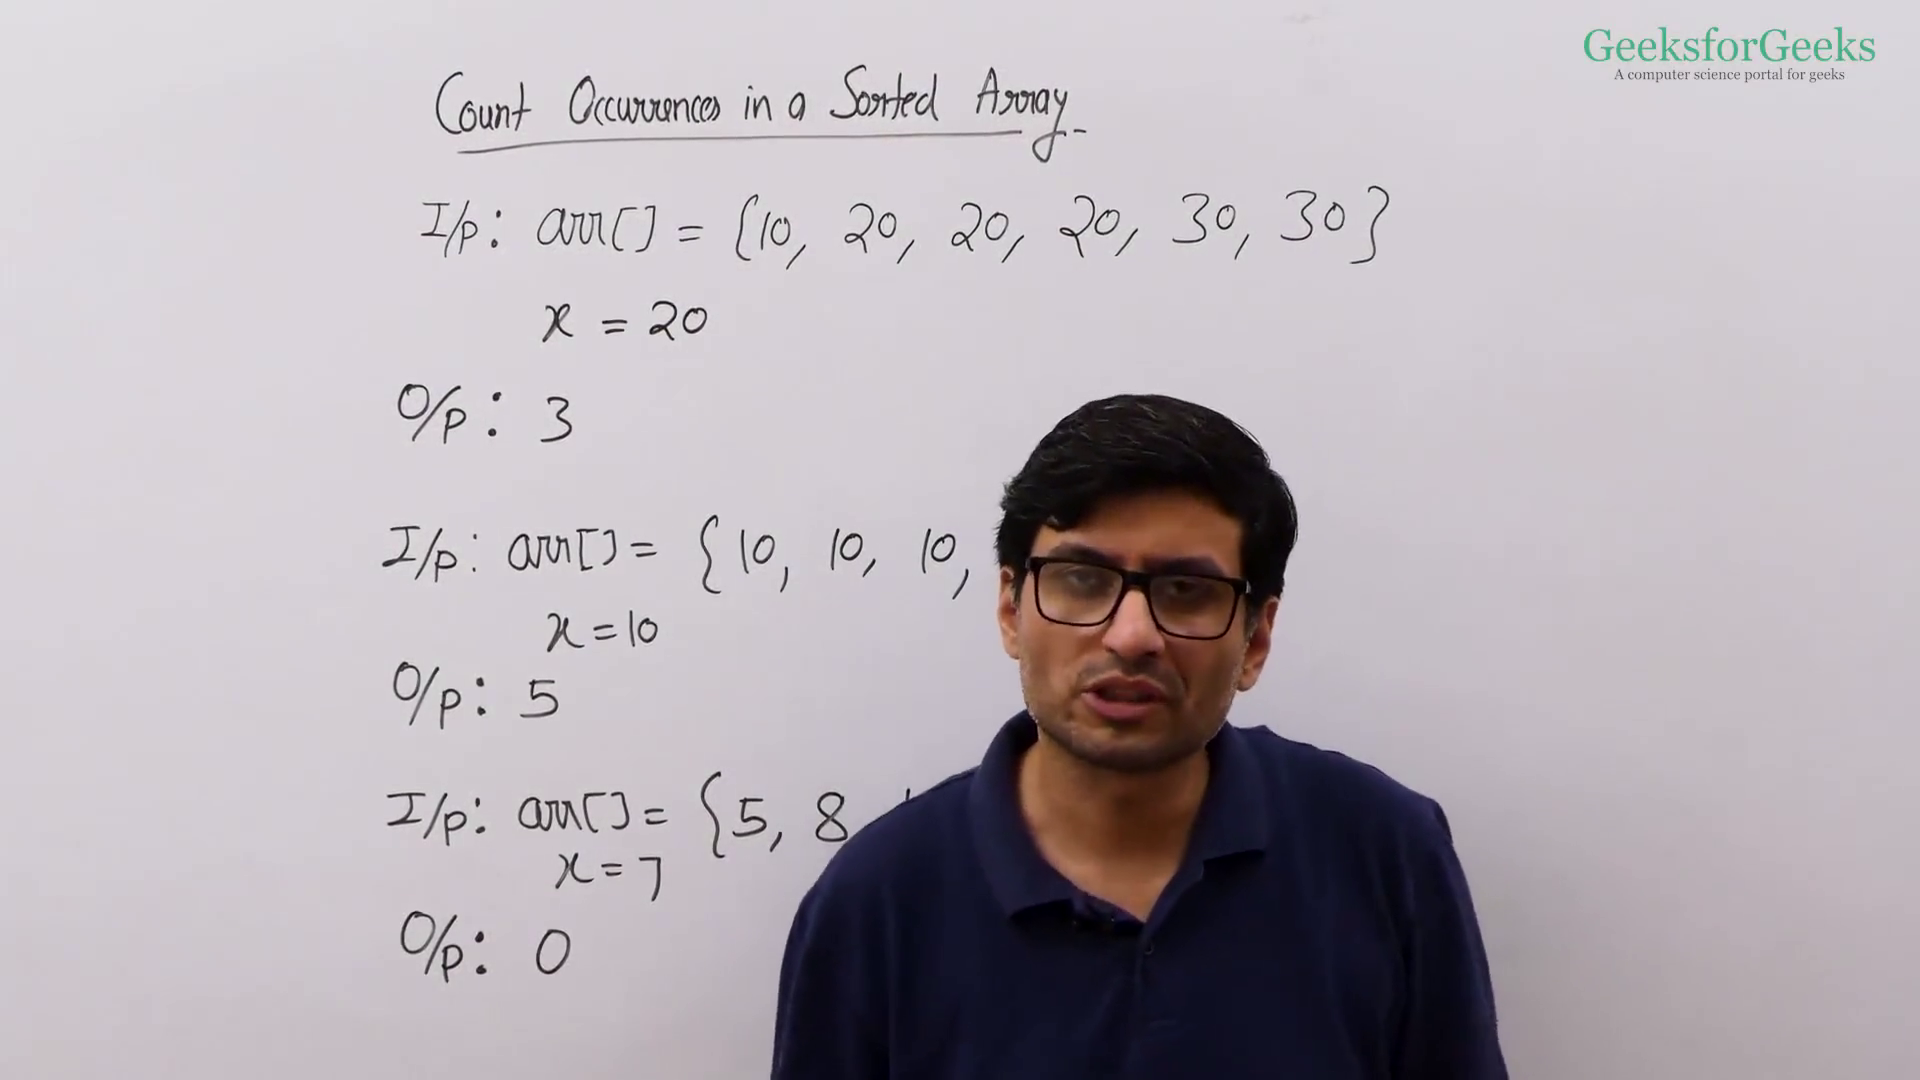 GeeksforGeeks
A computer science portal for geeks
Count Occurrences in a Sorted Array
I/p: arr[] = {10, 20, 20, 20, 30, 30}
x = 20
O/p: 3
I/p: arr[] = {10, 10, 10,
x = 10
O/p: 5
I/p: arr[] = {5, 8
x = 7
O/p: 0